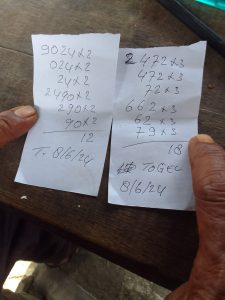 9024x2
024x2
24x2
2490x2
290x2
90x2
12
T. 8/6/24
2472x3
472x3
72x3
662x3
62x3
79x3
18
TOGEL
8/6/24